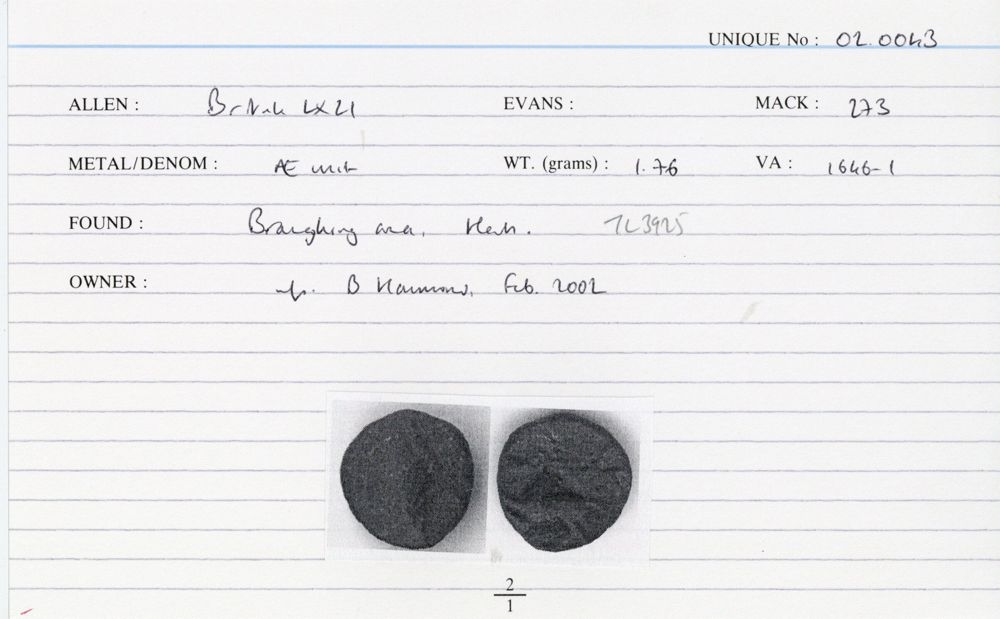 UNIQUE No : 02.0043
ALLEN : British LX21 EVANS : MACK : 273
METAL/DENOM : Æ unit WT. (grams) : 1.76 VA : 1646-1
FOUND : Braughing area, Herts. TL3925
OWNER : B Hammond, Feb. 2002
2
1